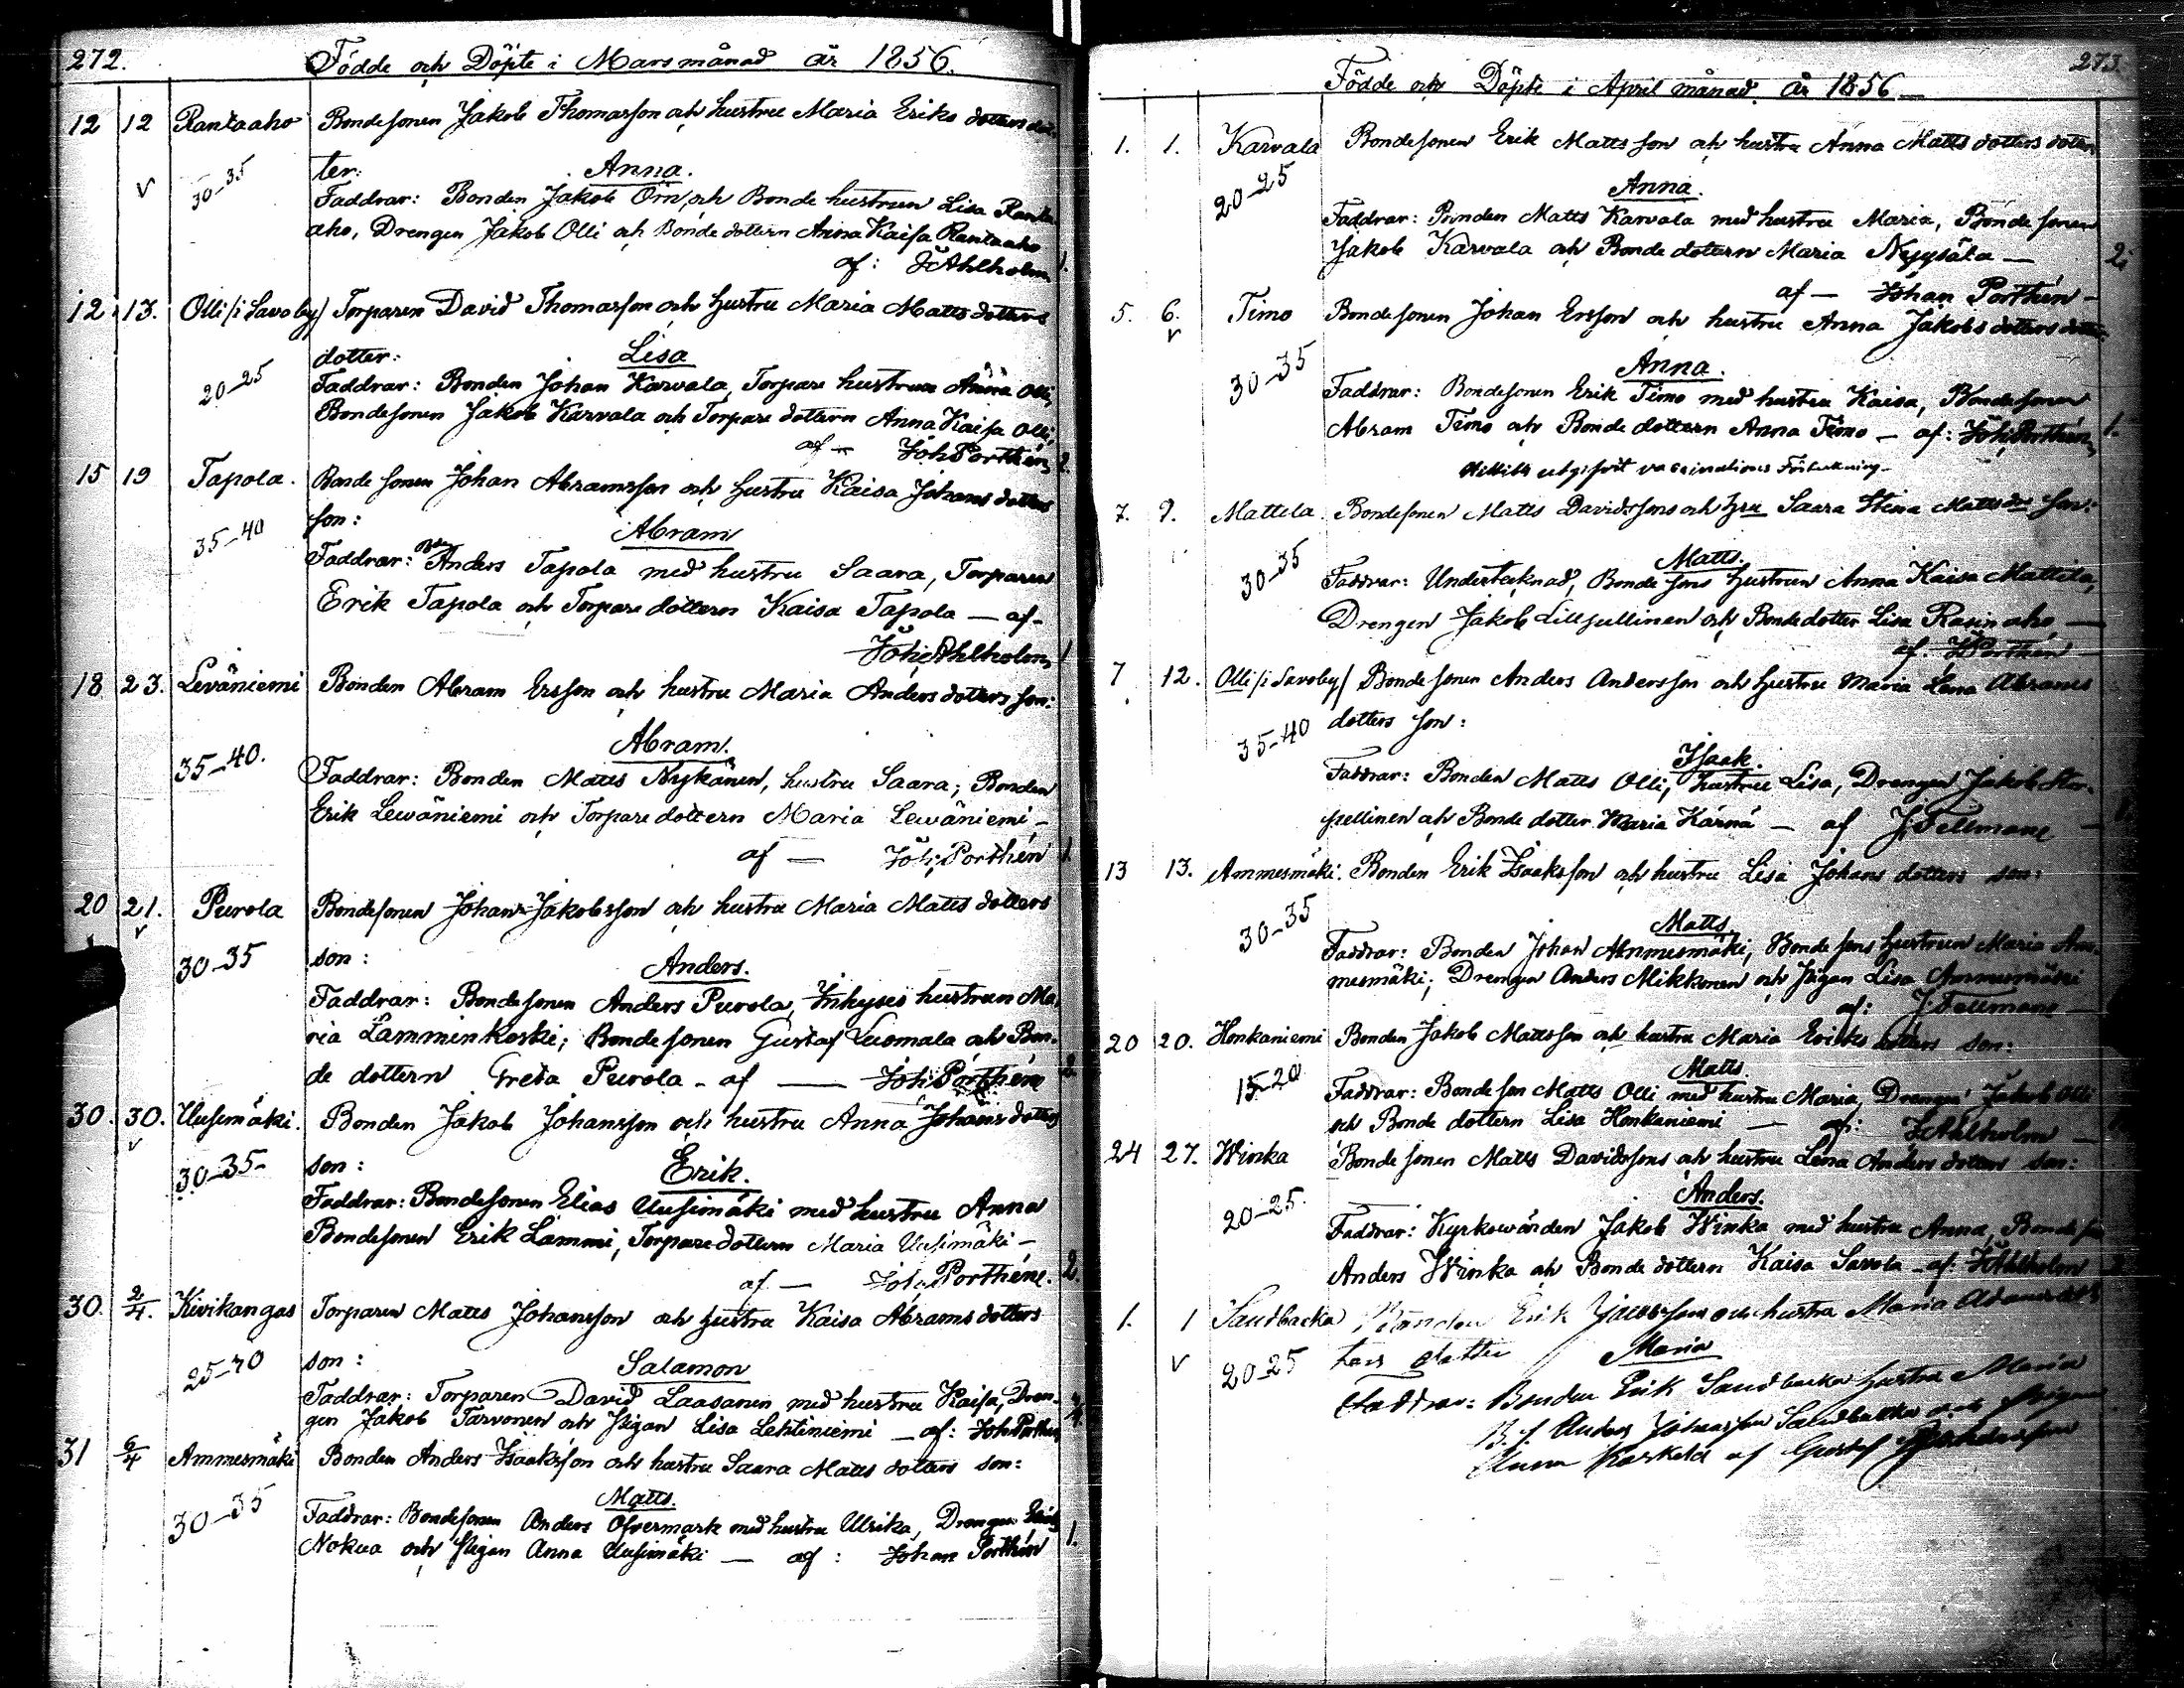 272.
Födde och Döpte i Mars månad År 1856.
12 12 Rantaaho Bondesonen Jakob Thomasson och hustru Maria Eriks dotters dot-
ter:
Anna.
30-35
Faddrar: Bonden Jakob Orn, och Bonde hustrun Lisa Ranta-
aho, Drengen Jakob Olli och Bonde dottern Anna Kaisa Rantaaho
af: J Ahlholm 1.
12 13. Olli /i Savoby/ Torparen David Thomasson och Hustru Maria Matts dotters
dotter:
Lisa
20-25
Faddrar: Bonden Johan Karvala, Torpare hustrun Anna Olli,
Bondesonen Jakob Karvala och Torpare dottern Anna Kaisa Olli,
af - Joh Porthén 2.
15 19 Tapola. Bonde sonen Johan Abramsson och Hustru Kaisa Johans dotters
son:
Abram
35-40
Faddrar: Bdn Anders Tapola med hustru Saara, Torparen
Erik Tapola och Torpare dottern Kaisa Tapola - af -
Joh Ahlholm 1
18 23. Leväniemi Bonden Abram Ersson och hustru Maria Anders dotters son:
Abram.
35-40.
Faddrar: Bonden Matts Nykänen, hustru Saara; Bonden
Erik Lewäniemi och Torpare dottern Maria Lewäniemi -
af - Joh Porthén 1
20 21. v Purola Bondesonen Johan Jakobsson och hustru Maria Matts dotters
son:
Anders.
30-35
Faddrar: Bondesonen Anders Purola, Inhyses hustrun Ma-
ria Lamminkoski; Bonde sonen Gustaf Luomala och Bon-
de dottern Greta Purola - af - Joh Porthén 2
30. 30. v Uusimäki. Bonden Jakob Johansson och hustru Anna Johans dotters
son:
Erik.
30-35-
Faddrar: Bondesonen Elias Uusimäki med hustru Anna
Bondesonen Erik Lammi, Torpare dottern Maria Uusimäki -
af - Joh Porthén. 2.
30. 2/4. Kivikangas Torparen Matts Johansson och Hustru Kaisa Abrams dotters
son:
Salamon
Faddrar: Torparen David Laasanen med hustru Kaisa, Dren-
gen Jakob Tarvonen och Pigan Lisa Lehtiniemi - af: Joh Porthén
31 6/4 Ammesmäki Bonden Anders Isaaksson och hustru Saara Matts dotters son:
Matts.
30-35
Faddrar: Bondesonen Anders Ofvermark med hustru Ulrika, Drengen
Nokua och Pigan Anna Uusimäki - af: Johan Porthén 1.
273.
Födde och Döpte i April månad År 1856
1. 1. Karvala Bondesonen Erik Matts son och hustru Anna Matts dotters dotter
20-25
Anna.
Faddrar: Bonden Matts Karvala med hustru Maria, Bonde sonen
Jakob Karvala och Bonde dottern Maria - 2.
af - Johan Porthén -
5. 6. v Timo Bondesonen Johan Ersson och hustru Anna Jakobs dotters dotter:
Anna.
30-35
Faddrar: Bondesonen Erik Timo med hustru Kaisa, Bondesonen
Abram Timo och Bonde dottern Anna Timo - af: Joh Porthén 1.
7. 9. Mattila. Bondesonen Matts Davidsson och Hru Saara Stina Matts dr son:
30-35
Matts.
Faddrar: Undertecknad, Bonde sons Hustrun Anna Kaisa Mattila,
Drengen Jakob Lillpellinen och Bondedotter Lisa Rasinaho -
af. J Porthén
7 12. Olli /i Savoby/ Bonde sonen Anders Andersson och Hustru Maria Lena Abrams
dotters son:
35-40
Isaak.
Faddrar: Bonden Matts Olli, hustru Lisa, Drengen Jakob Stor-
pellinen och Bonde dotter Maria Kärnä - af J Fellmane -
13 13. Ammesmäki. Bonden Erik Isaaksson och hustru Lisa Johans dotters son:
30-35
Matts.
Faddrar: Bonden Johan Ammesmäki, Bonde sons Hustrun Maria Am-
mesmäki; Drengen Anders Mikkonen och Pigan Lisa Ammesmäki
af: J Fellmane
20 20. Honkaniemi Bonden Jakob Mattsson och hustru Maria Eriks dotters son:
Matts.
15-20
Faddrar: Bonde son Matts Olli med hustru Maria, Drengen Jakob Olli
och Bonde dottern Lisa Honkaniemi - af: J Ahlholm -
24 27. Winka Bonde sonen Matts Davidssons och hustru Lena Anders dotters son:
Anders.
20-25.
Faddrar: Kyrkowärden Jakob Winka med hustru Anna, Bonde son
Anders Winka och Bonde dottern Kaisa Savola - af. J Ahlholm
1. 1 v Sandbacka Bonden Erik Jacobsson och hustra Maria Adams
ters dotter
Maria
20-25
Faddrar: Bonden Erik Sandbacka hustru Maria
B. s Anders Johansson Sandbacka och Pigan
Anna Koskela af Gustaf